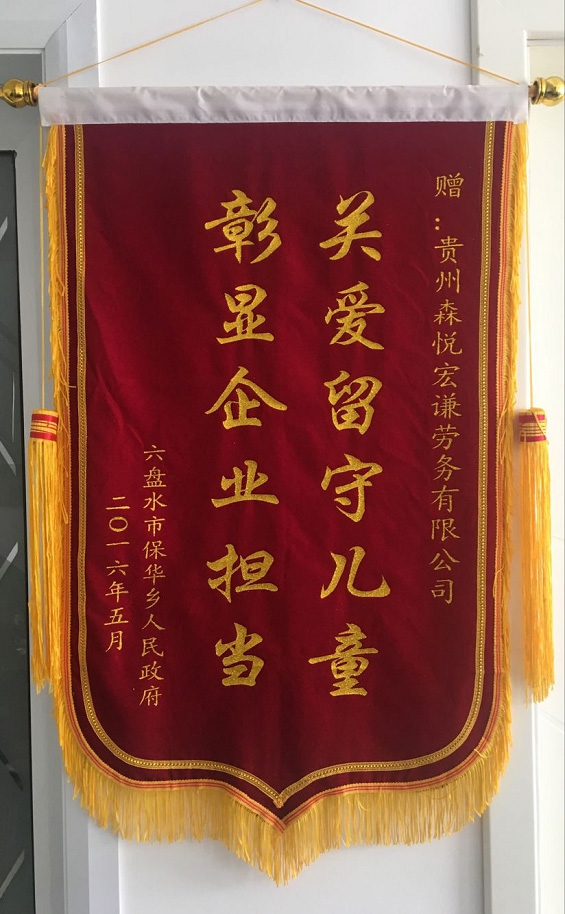 赠：贵州森悦宏谦劳务有限公司
关爱留守儿童
彰显企业担当
六盘水市保华乡人民政府
二〇一六年五月